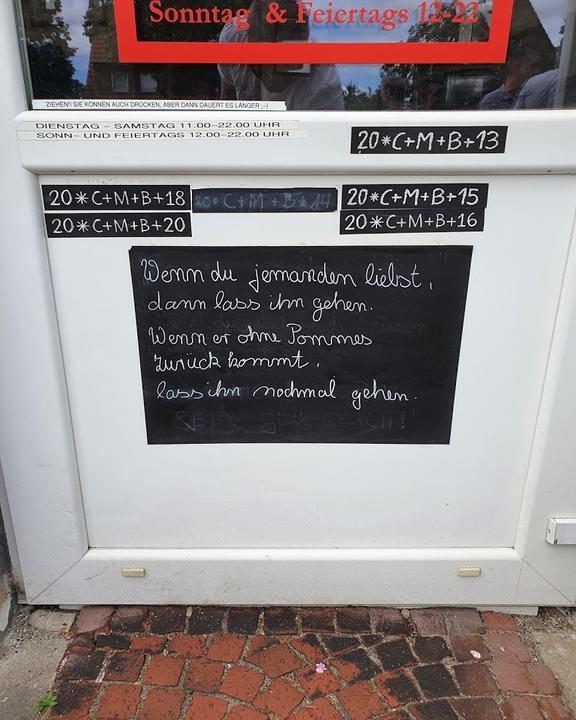 Sonntag & Feiertags 12-22
ZIEHEN!! SIE KÖNNEN AUCH DRÜCKEN, ABER DANN DAUERT ES LÄNGER ;-)
DIENSTAG - SAMSTAG 11.00-22.00 UHR
SONN- UND FEIERTAGS 12.00-22.00 UHR
20*C+M+B+13
20*C+M+B+18
20*C+M+B*14
20*C+M+B+15
20*C+M+B+20
20*C+M+B+16
Wenn du jemanden liebst,
dann lass ihn gehen.
Wenn er ohne Pommes
zurück kommt,
lass ihn nochmal gehen.